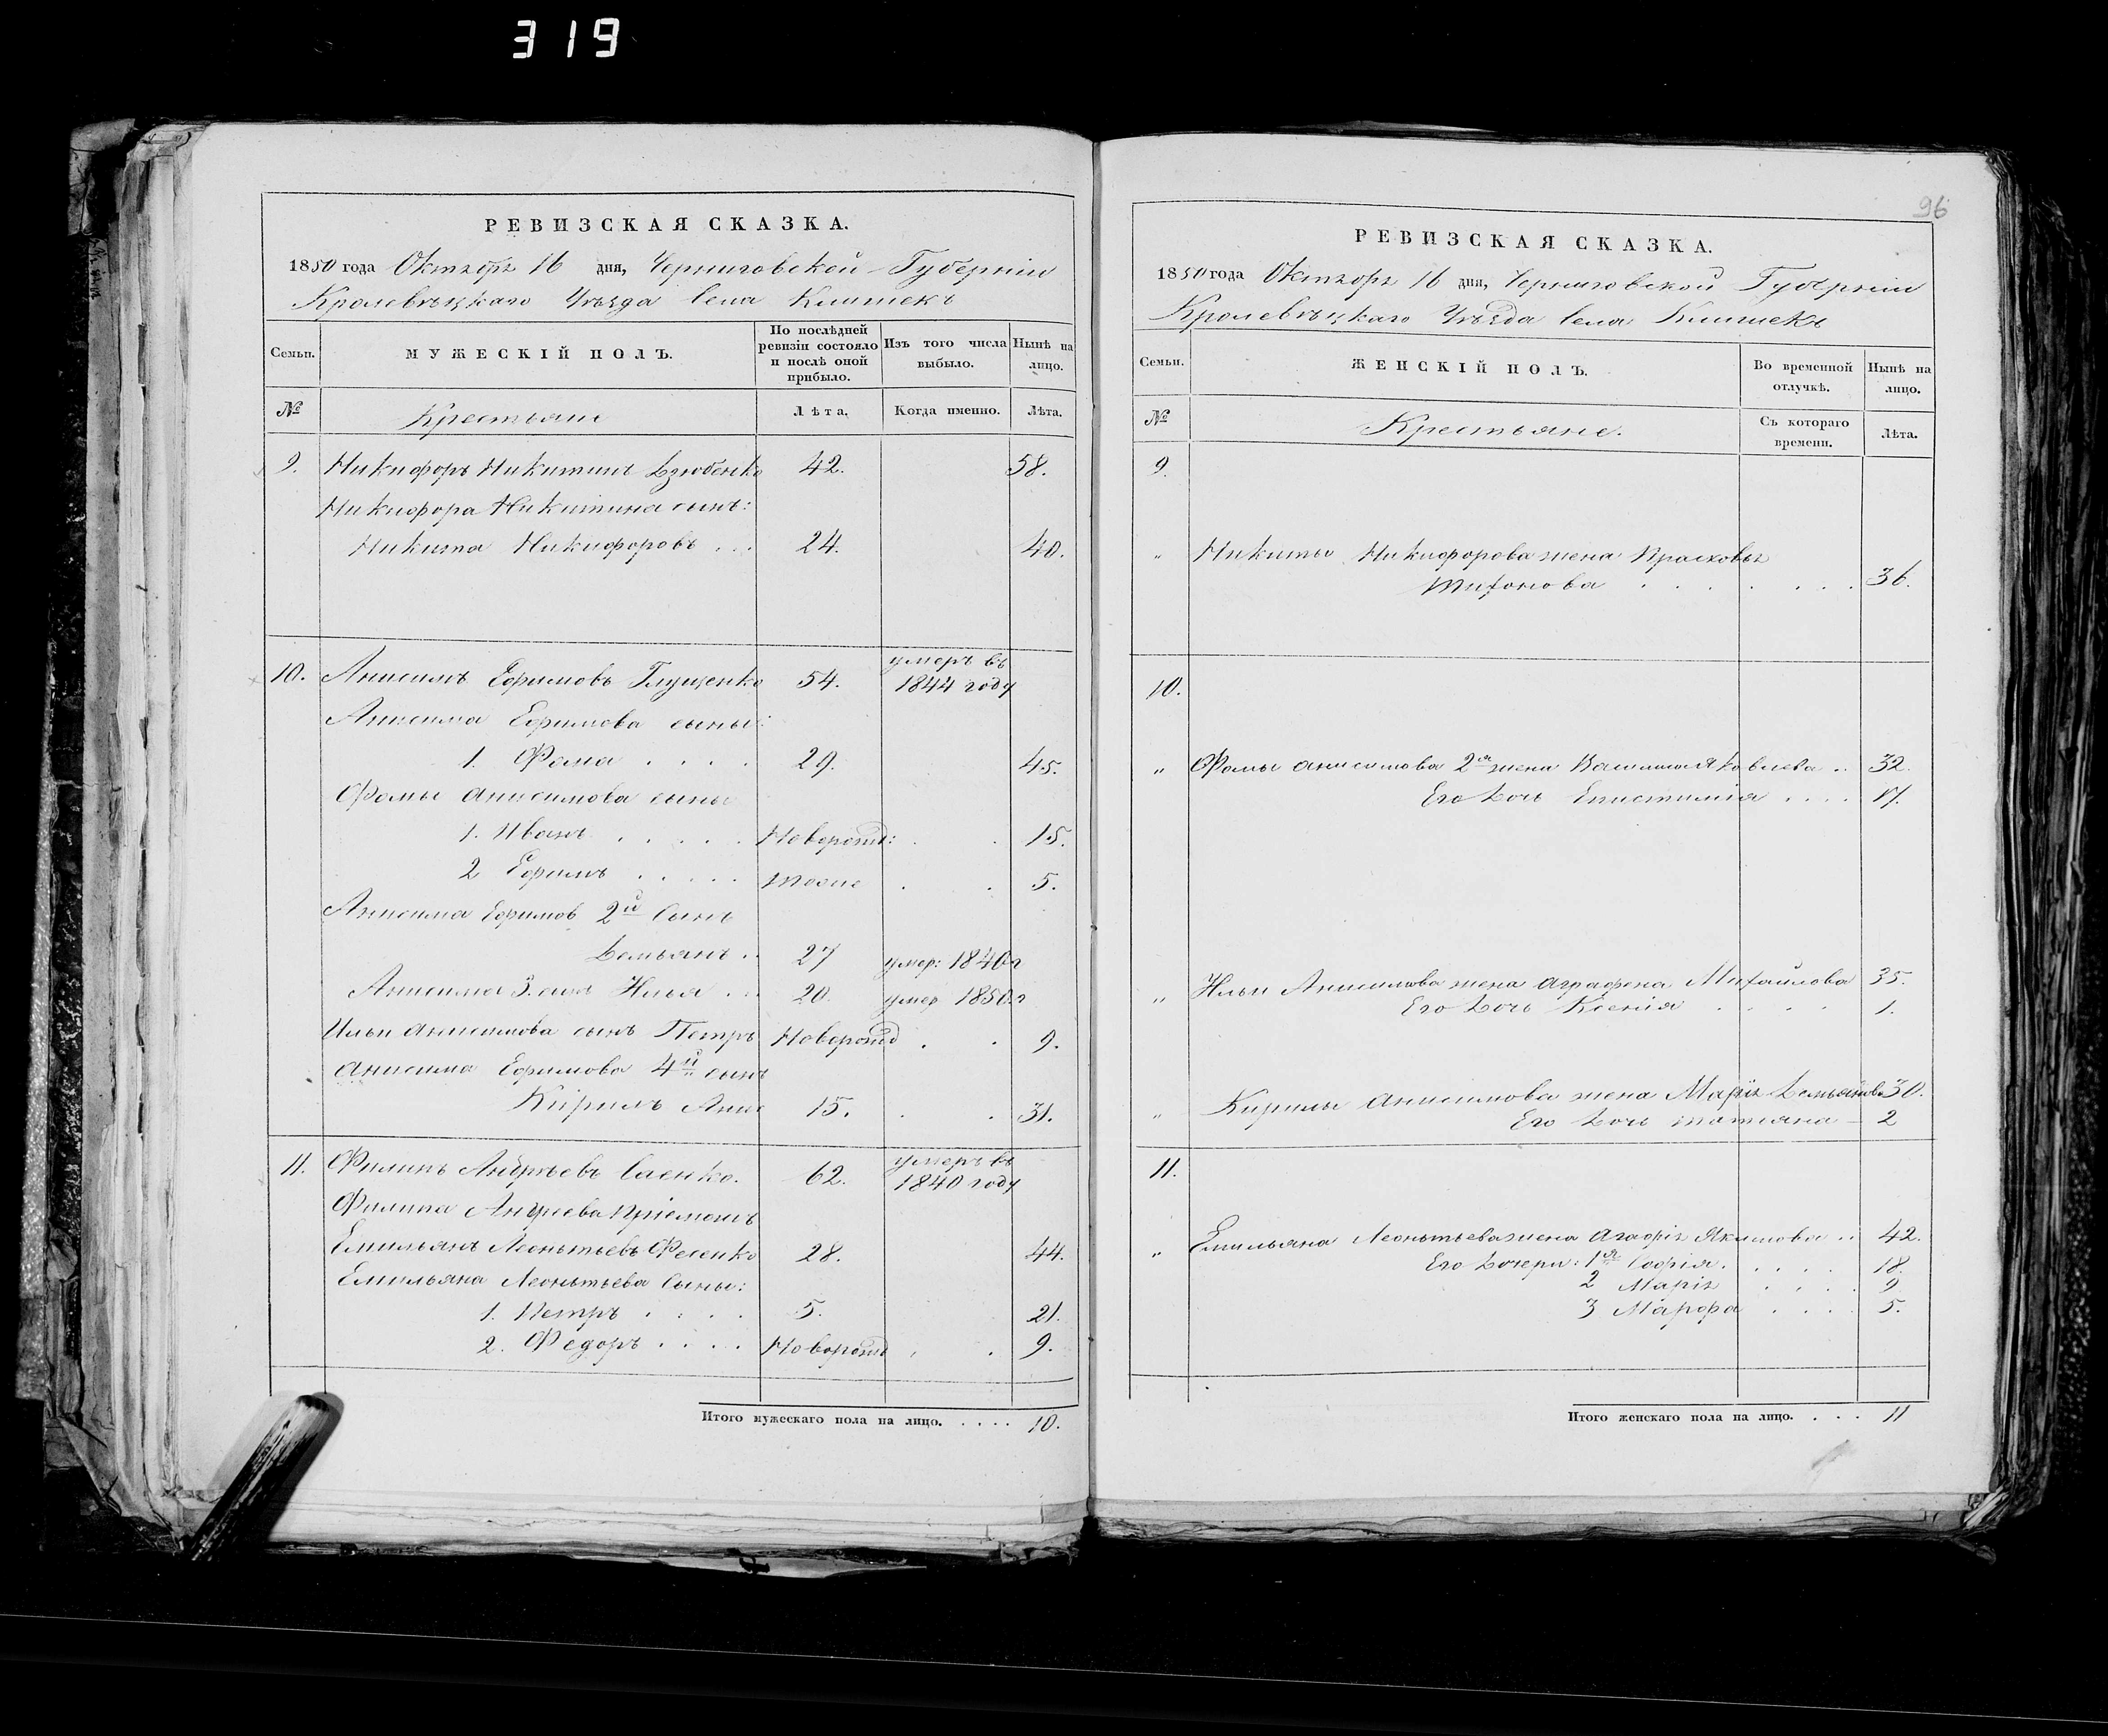 319
96
РЕВИЗСКАЯ СКАЗКА.
1850 года Октября 16 дня, Черниговской Губерніи
Кролевѣцкаго Уѣзда Села Клишекъ
Семьи.
МУЖЕСКІЙ ПОЛЪ.
По послѣдней ревизіи состояло и послѣ оной прибыло.
Изъ того числа выбыло.
Нынѣ на лицо.
№
Крестьяне
Лѣта.
Когда именно.
Лѣта.
9. Никифоръ Никитинъ Дзюбенко 42. 58.
Никифора Никитина сынъ:
Никита Никифоровъ . . . 24. 40.
10. Анисимъ Ефимовъ Глущенко 54. умеръ въ 1844 году
Анисима Ефимова сыны:
1. Фома . . . . 29. 45.
Фомы Анисимова сыны
1. Иванъ . . . . . Новорожд: . . 15.
2 Ефимъ . . . . . тоже . . 5.
Анисима Ефимов 2й Сынъ
Демьянъ . . 27 умер: 1840 г
Анисима 3. сынъ Илья . . . 20. умер 1850. г
Ильи Анисимова сынъ Петръ Новорожд . . 9.
Анисима Ефимова 4й сынъ
Кирилъ Анис 15. . . 31.
11. Филипъ Андрѣевъ Саенко. 62. умеръ въ 1840 году
Филипа Андреева пріемышъ
Емильянъ Леонтьевъ Фесенко 28. 44.
Емильяна Леонтьева Сыны:
1. Петръ . . . . 5. 21.
2. Федоръ . . . . Новорожд . . 9.
Итого мужескаго пола на лицо. . . . . 10.
РЕВИЗСКАЯ СКАЗКА.
1850 года Октября 16 дня, Черниговской Губерніи
Кролевѣцкаго Уѣзда Села Клишекъ
Семьи.
ЖЕНСКІЙ ПОЛЪ.
Во временной отлучкѣ.
Нынѣ на лицо.
№
Крестьяне.
Съ котораго времени.
Лѣта.
9.
" Никиты Никифорова жена Прасковья
Тихонова . . . . . . . 36.
10.
" Фомы Анисимова 2я жена Яковлева .. 32.
Его Дочь Епистимія . . . . 17.
" Ильи Анисимова жена Аграфена Михайлова 35.
Его Дочь Ксенія . . . . 1.
" Кирилы Анисимова жена Марія Демьянова 30.
Его Дочь Татіяна — 2
11.
" Емильяна Леонтьева жена Агафія Якимова .. 42.
Его Дочери: 1я Софія . . . . . 18.
2 Марія . . . . 9
3 Марфа . . . . 5.
Итого женскаго пола на лицо. . . . 11